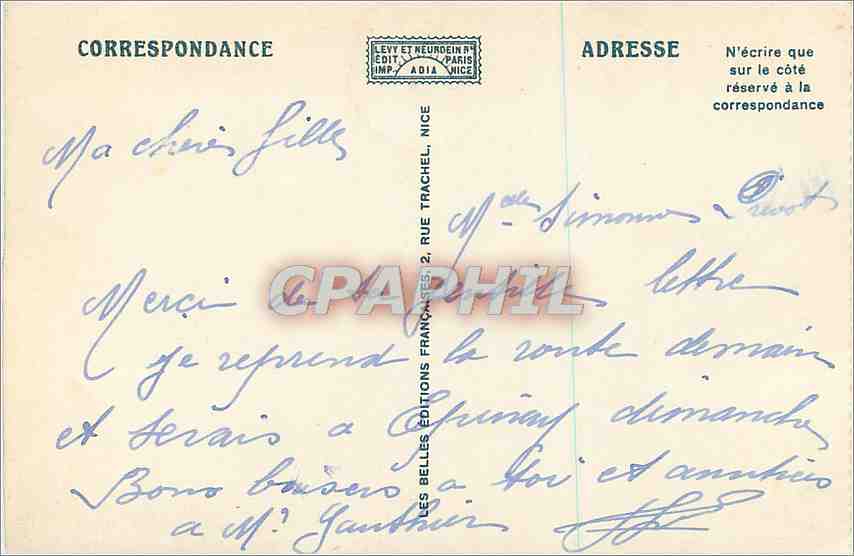 CORRESPONDANCE
LEVY ET NEURDEIN Rs
ÉDIT. PARIS
IMP. ADIA NICE
ADRESSE
N'écrire que
sur le côté
réservé à la
correspondance
LES BELLES ÉDITIONS FRANÇAISES, 2, RUE TRACHEL, NICE
Ma chère fille
Melle Simonne Prevot
CPAPHIL
Merci de ta gentille lettre
je reprend la route demain
et serais a Epinay dimanche
Bons baisers a toi et amitiés
a Mr Gauthier